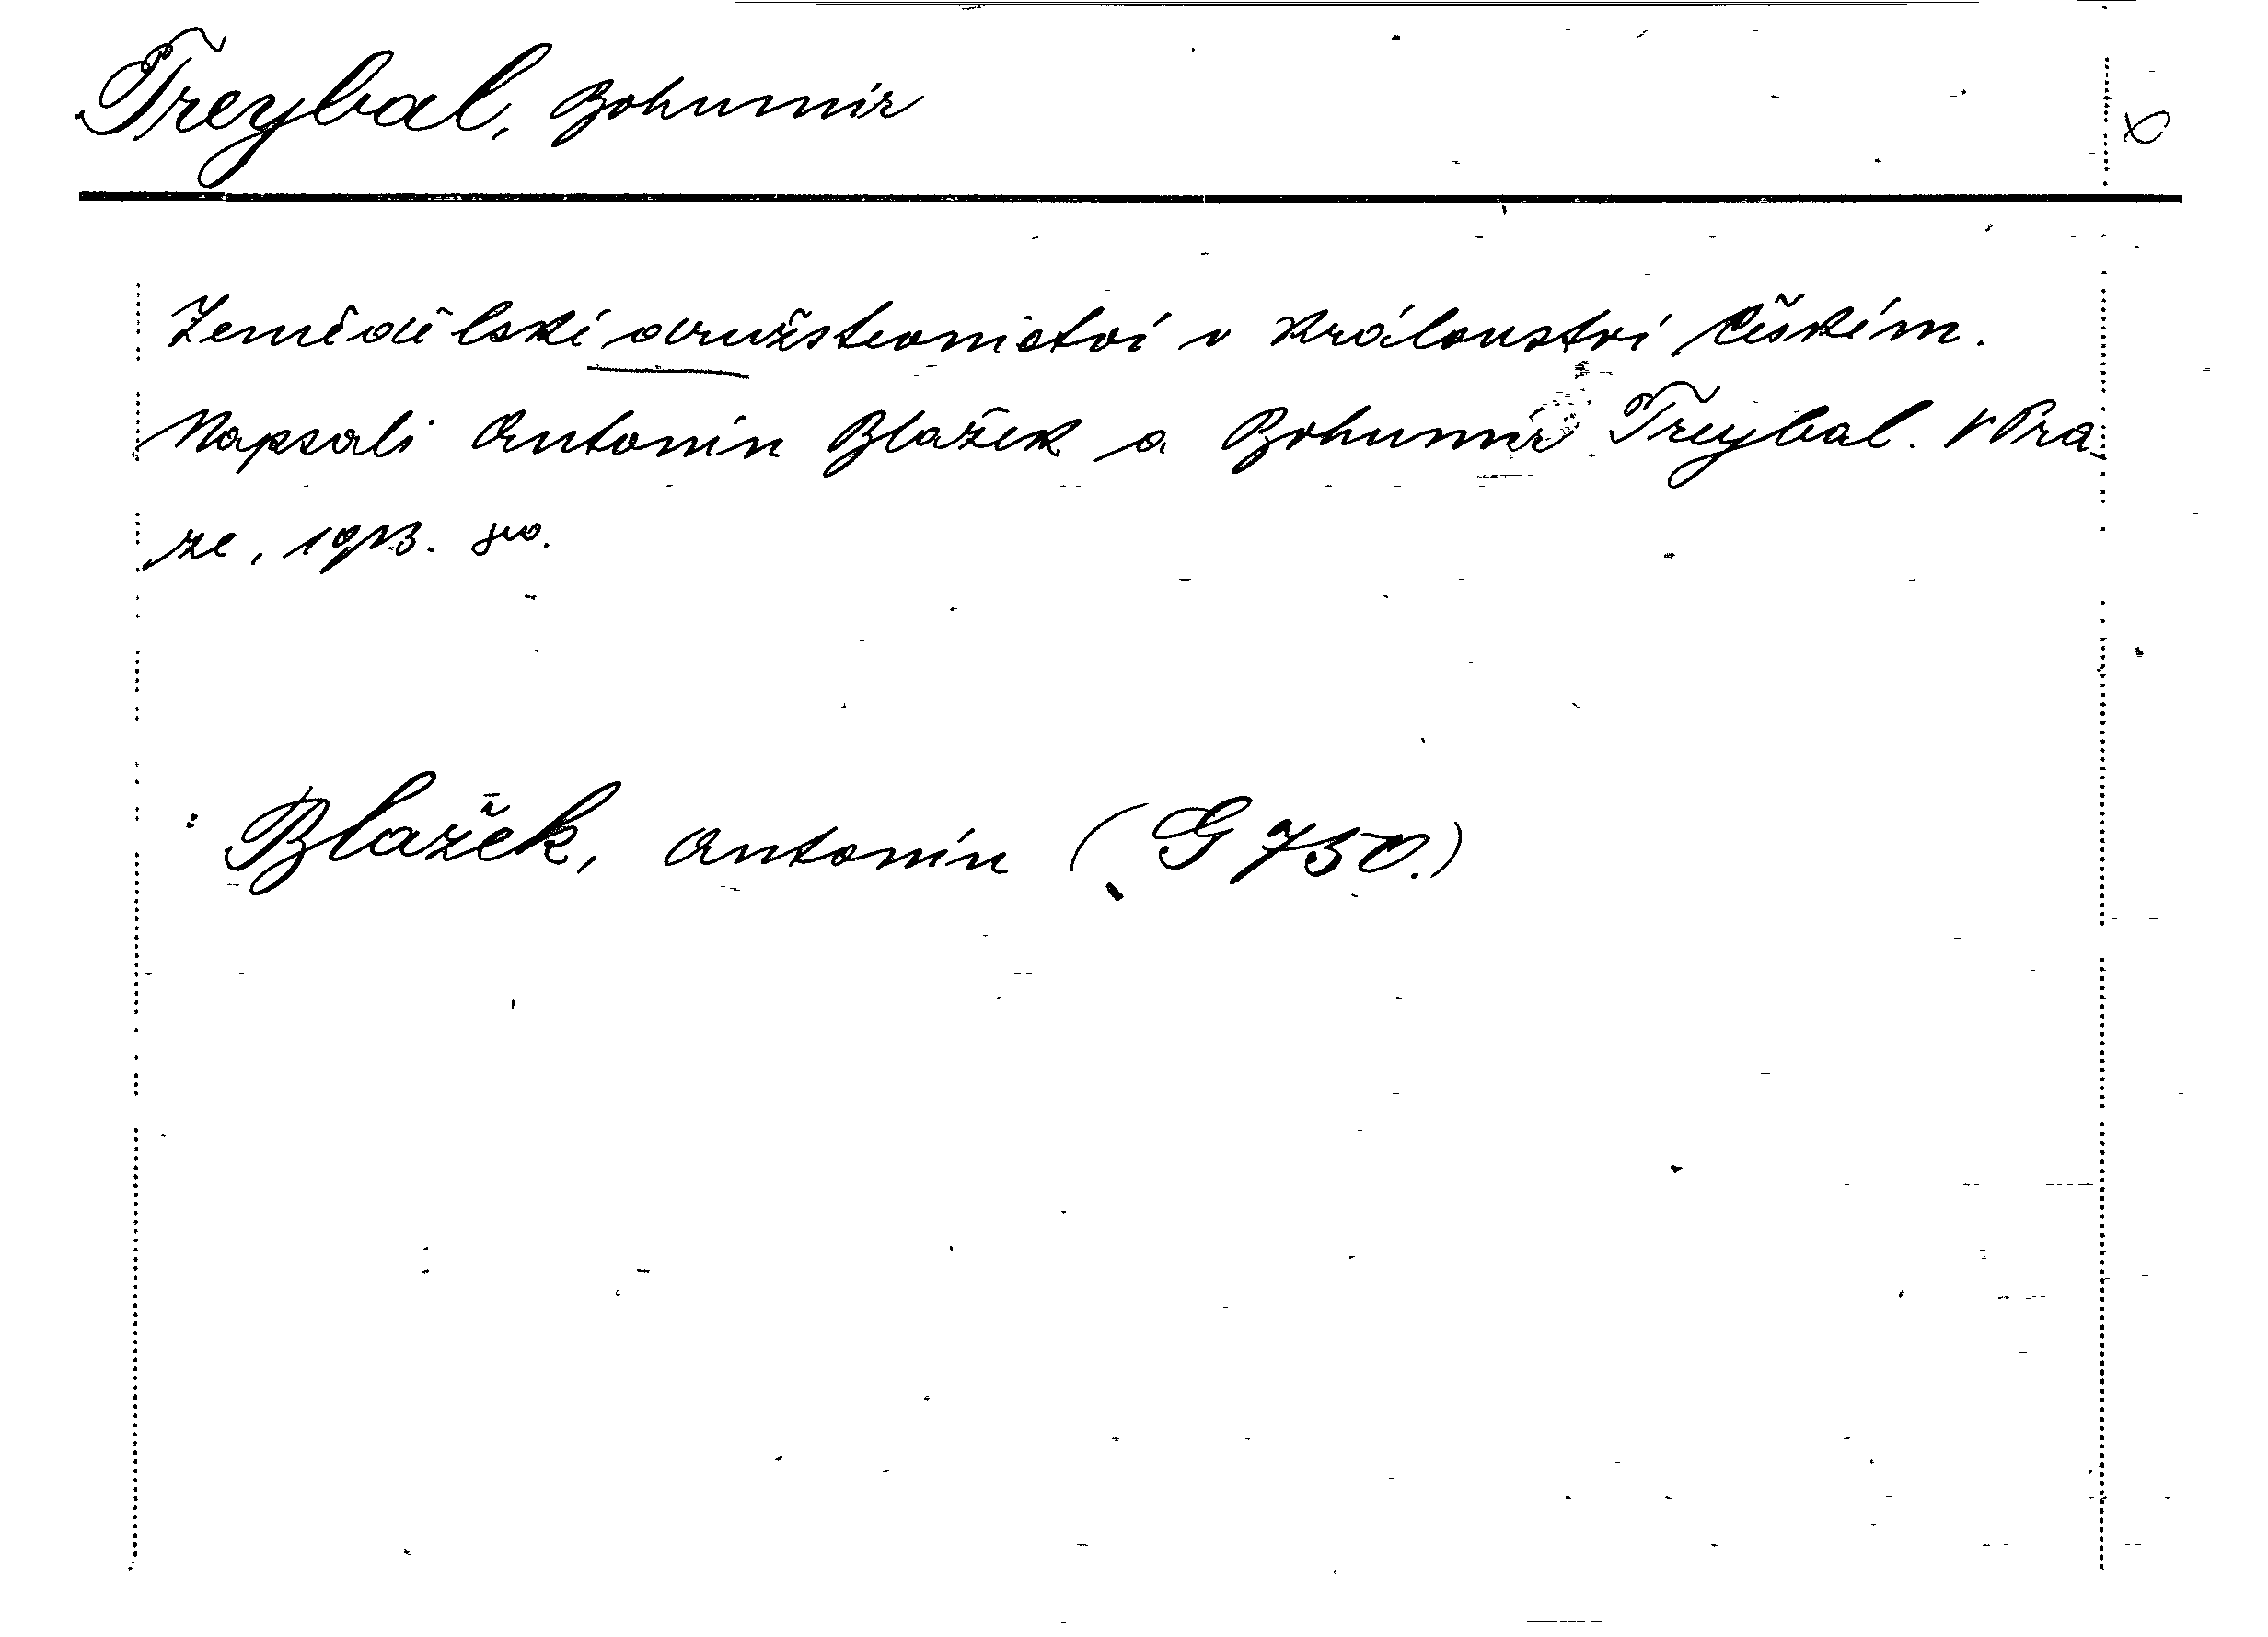 Treybal, Bohumír
Zemědělské družstevnictví v království Českém.
Napsali Antonín Blažek a Bohumír Treybal. V Pra-
ze, 1913. 8vo.
: Blažek, Antonín (G 750.)